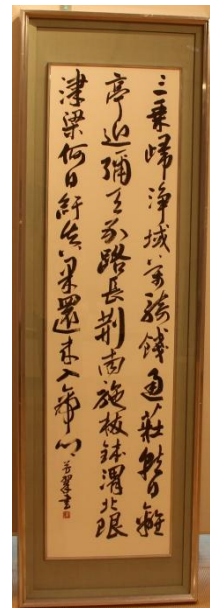 三乘歸淨域萬騎餞通莊就日離
亭近彌天別路長荊南旋杖鉢渭北限
津梁何日紆真果還来入帝鄉